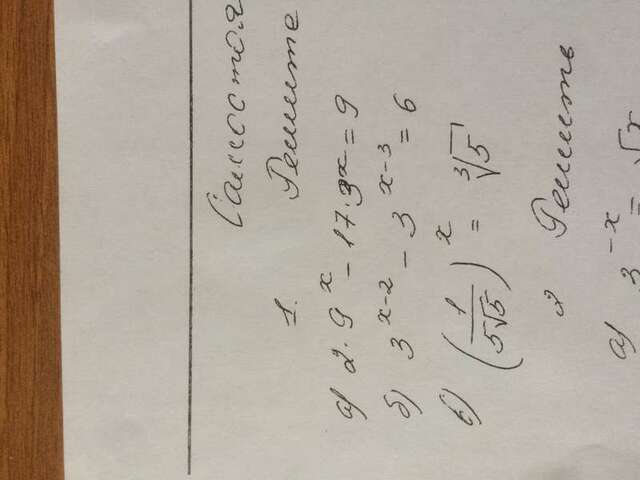 Самостоя
1. Решите
а) 2·9^x − 17·3^x = 9
б) 3^{x-2} − 3^{x-3} = 6
в) (1/(5√5))^x = ∛5
2 Решить
а) 3^{-x} = √x